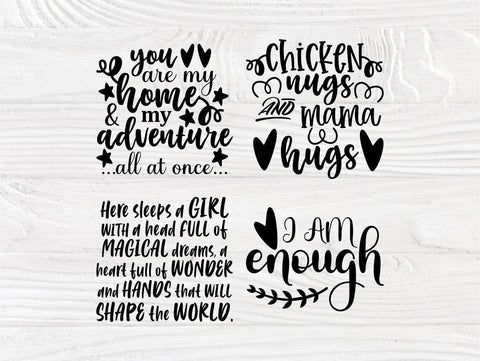 you
are my
home
& my
adventure
...all at once...
chicken
nugs
AND mama
hugs
Here sleeps a GIRL
WITH a HEAD FULL of
MAGICAL dreams, a
heart full of WONDER
and HANDS that WILL
SHAPE the WORLD.
I AM
enough